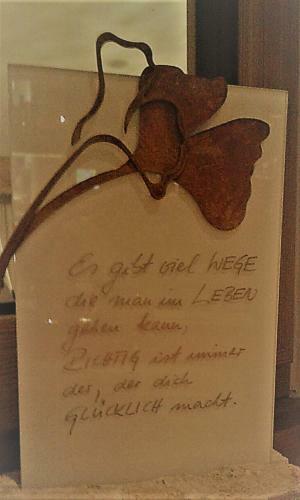 Es gibt viel WEGE
die man im LEBEN
gehen kann,
RICHTIG ist immer
der, der dich
GLÜCKLICH macht.